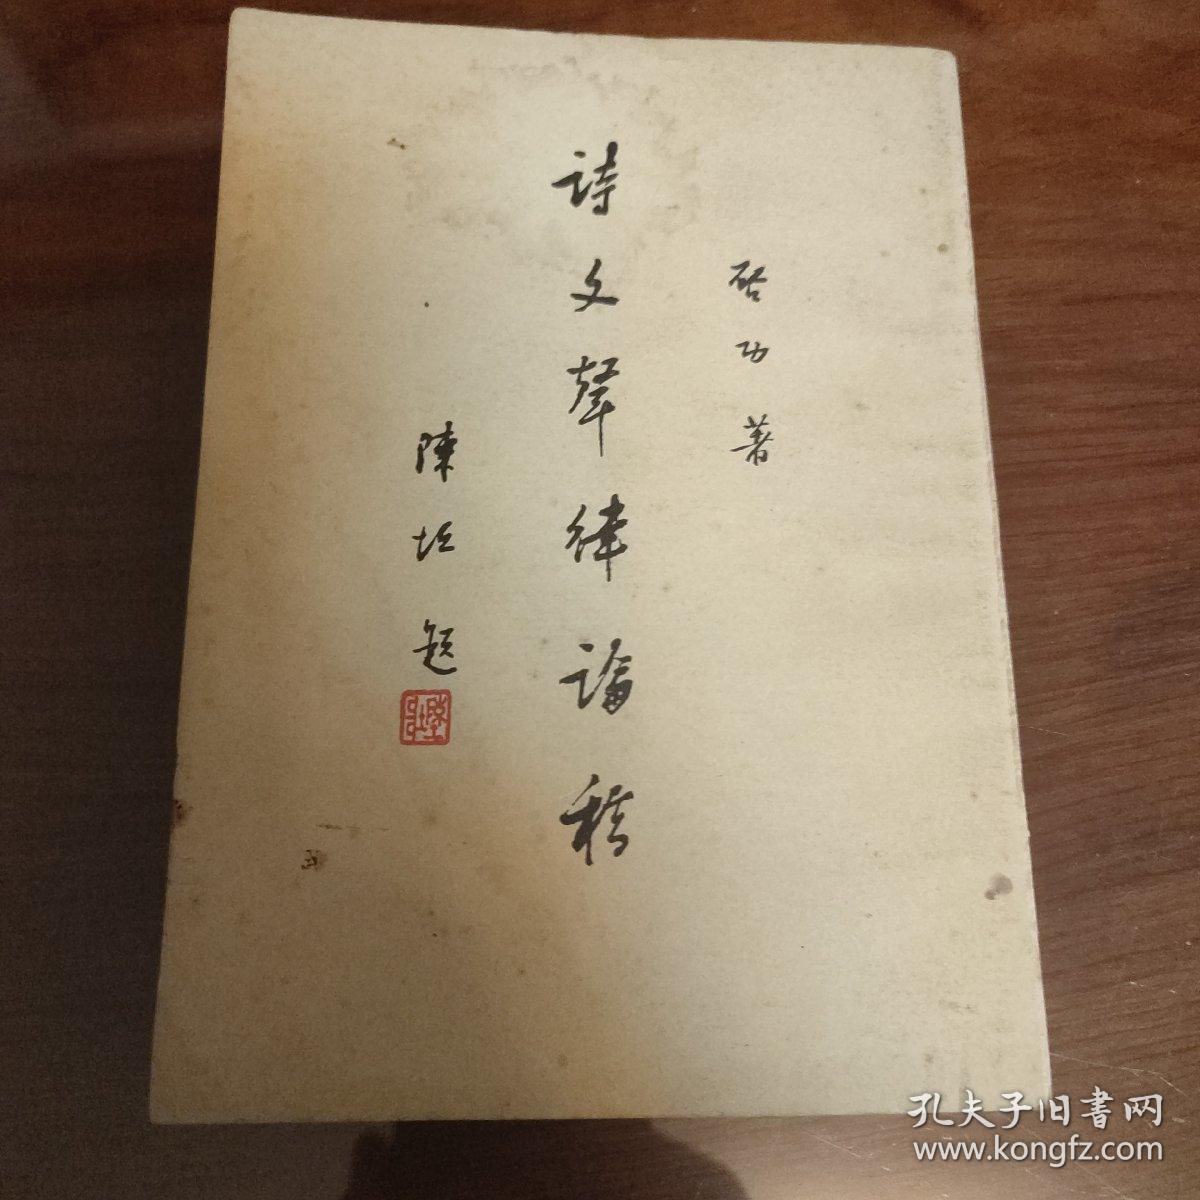 启功著
詩文聲律論稿
陳垣題
孔夫子旧書网
www.kongfz.com